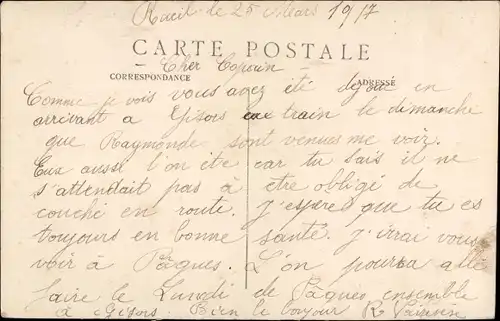 le 25 Mars 1917
CARTE POSTALE
Cher
CORRESPONDANCE
ADRESSÉ
Comme je vois vous avez été déçu en
arrivant a Gisors au train le dimanche
que Raymonde sont venues me voir.
Eux aussi l'on ete car tu sais il ne
s'attendait pas à etre obligé de
couché en route. J'espere que tu es
toujours en bonne santé. J'irai vous
voir à Pâques. L'on pourra allé
faire le Lundi de Pâques ensemble
a Gisors. Bien le bonjour R